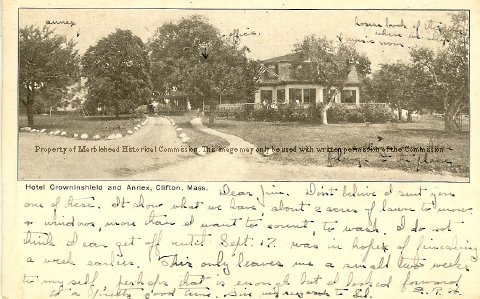 annex
office
house back of this
where
music room
Property of Marblehead Historical Commission. This image may only be used with written permission of the Commission.
Hotel Crowninshield and Annex, Clifton, Mass.
Dear Jim. Don't believe I sent you
one of these. It show what we have, about 2 acres of lawn to mow,
& windows, more than I want to count, to wash. I do not
think I can get off until Sept. 17. was in hopes of finishing
a week earlier. This only leaves me a small two weeks
to myself, perhaps that is enough but I looked forward
to a pretty good time. Give my regards to Ed. E.P.